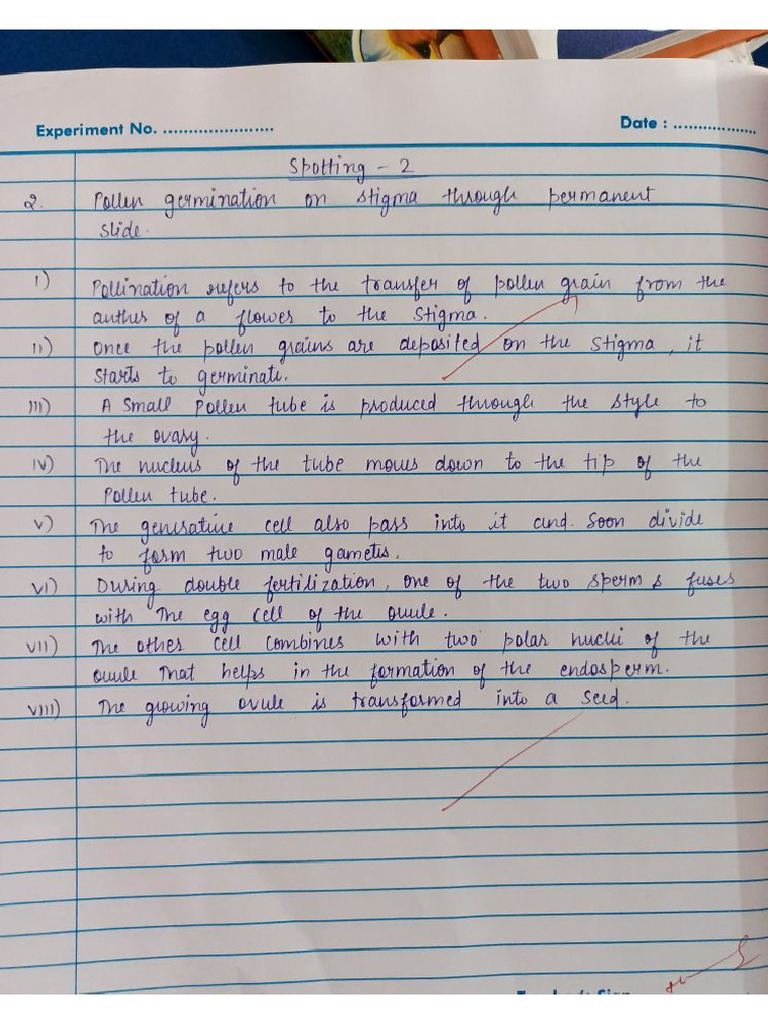 Experiment No. ......................
Date : .................
Spotting - 2
2. Pollen germination on stigma through permanent
slide.
i) Pollination refers to the transfer of pollen grain from the
anther of a flower to the Stigma.
ii) Once the pollen grains are deposited on the Stigma, it
starts to germinate.
iii) A Small Pollen tube is produced through the style to
the ovary.
iv) The nucleus of the tube moves down to the tip of the
Pollen tube.
v) The generative cell also pass into it and. Soon divide
to form two male gametes.
vi) During double fertilization, one of the two sperm s fuses
with The egg cell of the ovule.
vii) The other cell combines with two polar nuclei of the
ovule That helps in the formation of the endosperm.
viii) The growing ovule is transformed into a Seed.